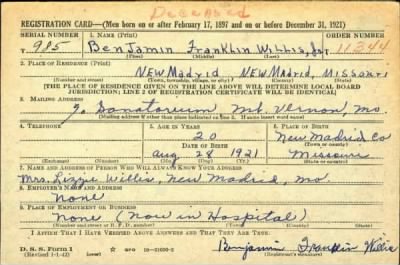 Deceased
REGISTRATION CARD—(Men born on or after February 17, 1897 and on or before December 31, 1921)
SERIAL NUMBER 1. NAME (Print) ORDER NUMBER
T 985 Benjamin Franklin Willis, Jr. T 11344
(First) (Middle) (Last)
2. PLACE OF RESIDENCE (Print)
New Madrid New Madrid, Missouri
(Number and street) (Town, township, village, or city) (County) (State)
[THE PLACE OF RESIDENCE GIVEN ON THE LINE ABOVE WILL DETERMINE LOCAL BOARD
JURISDICTION; LINE 2 OF REGISTRATION CERTIFICATE WILL BE IDENTICAL]
3. MAILING ADDRESS
Mt. Vernon, Mo.
[Mailing address if other than place indicated on line 2. If same insert word same]
4. TELEPHONE 5. AGE IN YEARS 6. PLACE OF BIRTH
20 New Madrid Co
DATE OF BIRTH (Town or county)
Aug 28 1921 Missouri
(Exchange) (Number) (Mo.) (Day) (Yr.) (State or country)
7. NAME AND ADDRESS OF PERSON WHO WILL ALWAYS KNOW YOUR ADDRESS
Mrs. Lizzie Willis, New Madrid, Mo.
8. EMPLOYER'S NAME AND ADDRESS
None
9. PLACE OF EMPLOYMENT OR BUSINESS
None (Now in Hospital)
(Number and street or R. F. D. number) (Town) (County) (State)
I AFFIRM THAT I HAVE VERIFIED ABOVE ANSWERS AND THAT THEY ARE TRUE.
D. S. S. Form 1 GPO 16—21630-2 Benjamin Franklin Willis
(Revised 1-1-42) (Registrant's signature)